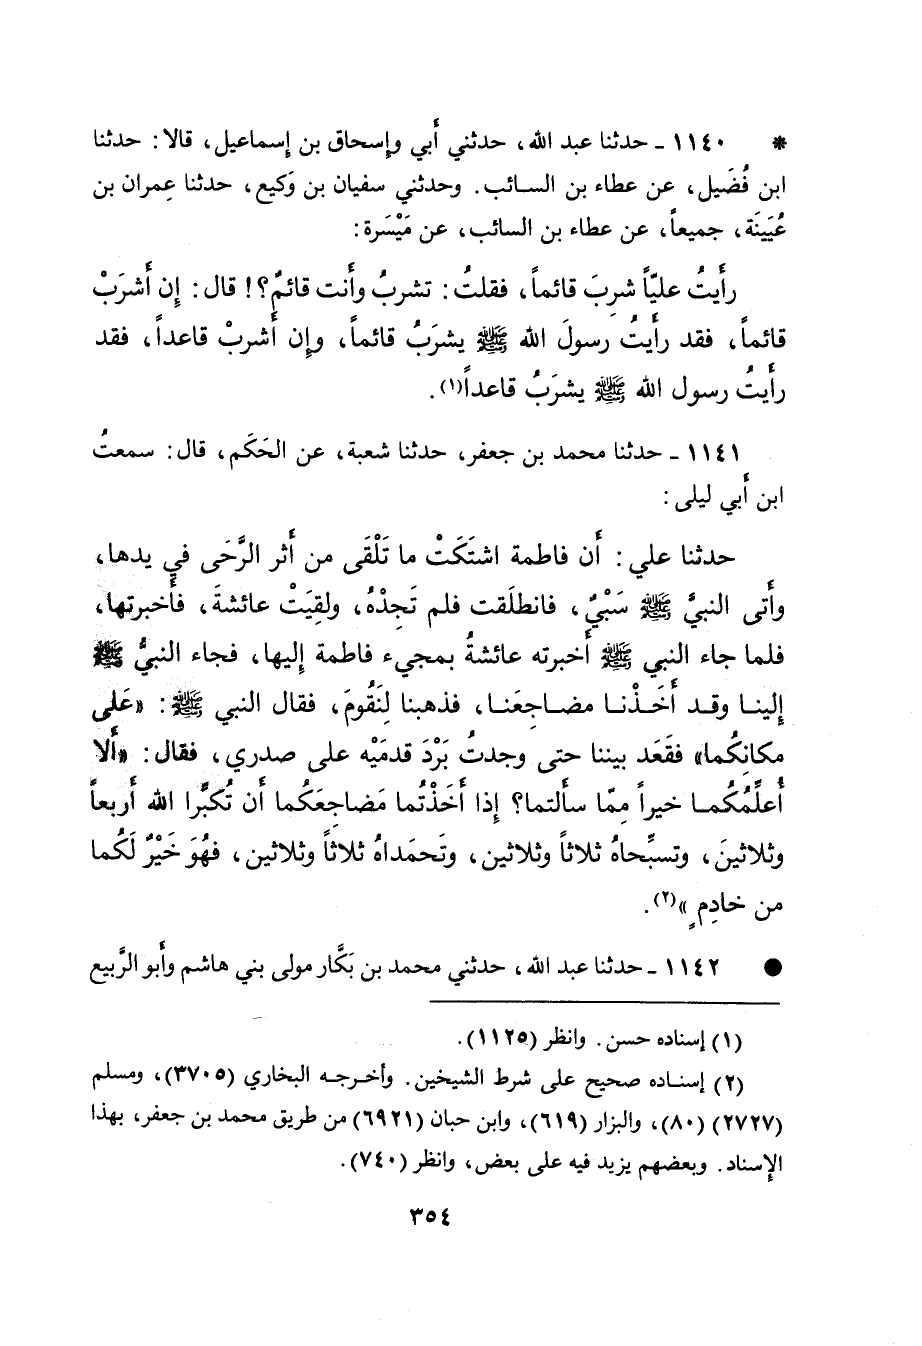 * ١١٤٠ ـ حدثنا عبد الله، حدثني أَبي وإسحاق بن إسماعيل، قالا: حدثنا
ابن فُضَيل، عن عطاء بن السائب. وحدثني سفيان بن وَكيع، حدثنا عِمران بن
عُيَينَة، جميعاً، عن عطاء بن السائب، عن مَيْسَرة:
رأَيتُ عليّاً شربَ قائماً، فقلتُ: تشربُ وأَنت قائمٌ؟! قال: إِن أَشرَبْ
قائماً، فقد رأَيتُ رسولَ الله ﷺ يشرَبُ قائماً، وإِن أَشربْ قاعداً، فقد
رأَيتُ رسول الله ﷺ يشرَبُ قاعداً(١).
١١٤١ ـ حدثنا محمد بن جعفر، حدثنا شعبة، عن الحَكَم، قال: سمعتُ
ابن أَبي ليلى:
حدثنا علي: أَن فاطمة اشتَكَتْ ما تَلْقَى من أَثر الرَّحَى في يدها،
وأَتى النبيَّ ﷺ سَبْيٌ، فانطلَقت فلم تَجِدْهُ، ولقِيَتْ عائشةَ، فأَخبرتها،
فلما جاء النبي ﷺ أَخبرته عائشةُ بمجيء فاطمة إليها، فجاء النبيُّ ﷺ
إلينا وقد أَخَذْنا مضاجِعَنا، فذهبنا لِنَقُومَ، فقال النبي ﷺ: «عَلى
مكانِكُما» فقَعَد بيننا حتى وجدتُ بَرْدَ قدمَيْه على صدري، فقال: «أَلا
أُعلِّمُكُما خيراً مِمّا سأَلتما؟ إذا أَخَذْتُما مَضاجِعَكُما أَن تُكبِّرا الله أَربعاً
وثلاثينَ، وتسبِّحاهُ ثلاثاً وثلاثين، وتَحمَداهُ ثلاثاً وثلاثين، فهُوَ خَيْرٌ لَكُما
من خادِمٍ»(٢).
● ١١٤٢ ـ حدثنا عبد الله، حدثني محمد بن بَكَّار مولى بني هاشم وأَبو الرَّبيع
(١) إسناده حسن. وانظر (١١٢٥).
(٢) إسناده صحيح على شرط الشيخين. وأخرجه البخاري (٣٧٠٥)، ومسلم
(٢٧٢٧) (٨٠)، والبزار (٦١٩)، وابن حبان (٦٩٢١) من طريق محمد بن جعفر، بهذا
الإسناد. وبعضهم يزيد فيه على بعض، وانظر (٧٤٠).
٣٥٤